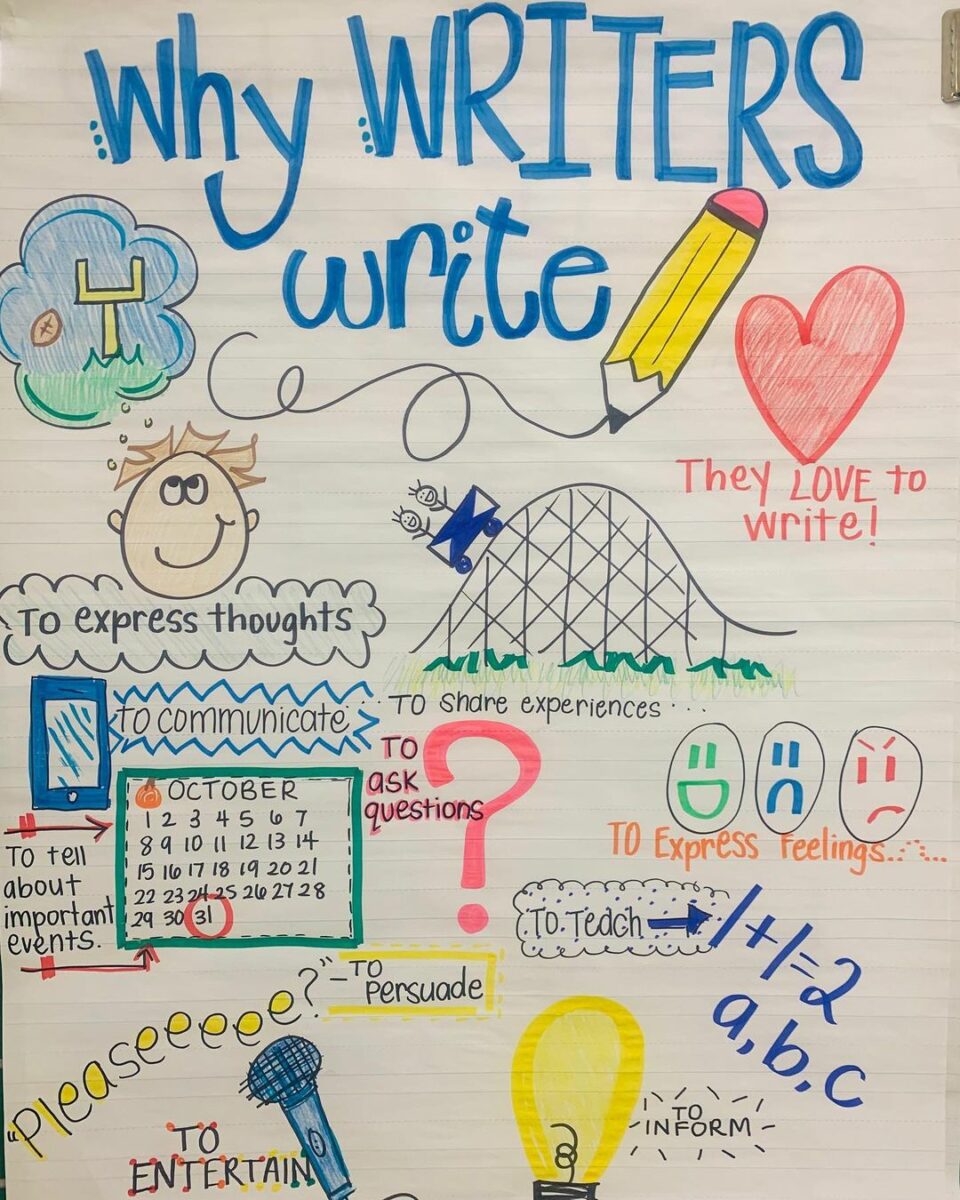 Why WRITERS
write
They LOVE to
write!
To express thoughts
To communicate
... To share experiences ...
To
ask
questions
?
OCTOBER
1 2 3 4 5 6 7
8 9 10 11 12 13 14
15 16 17 18 19 20 21
22 23 24 25 26 27 28
29 30 31
To tell
about
important
events.
To Express Feelings.......
To Teach
1+1=2
a,b,c
"Pleaseeeee?" - To
Persuade
To
ENTERTAIN
To
INFORM